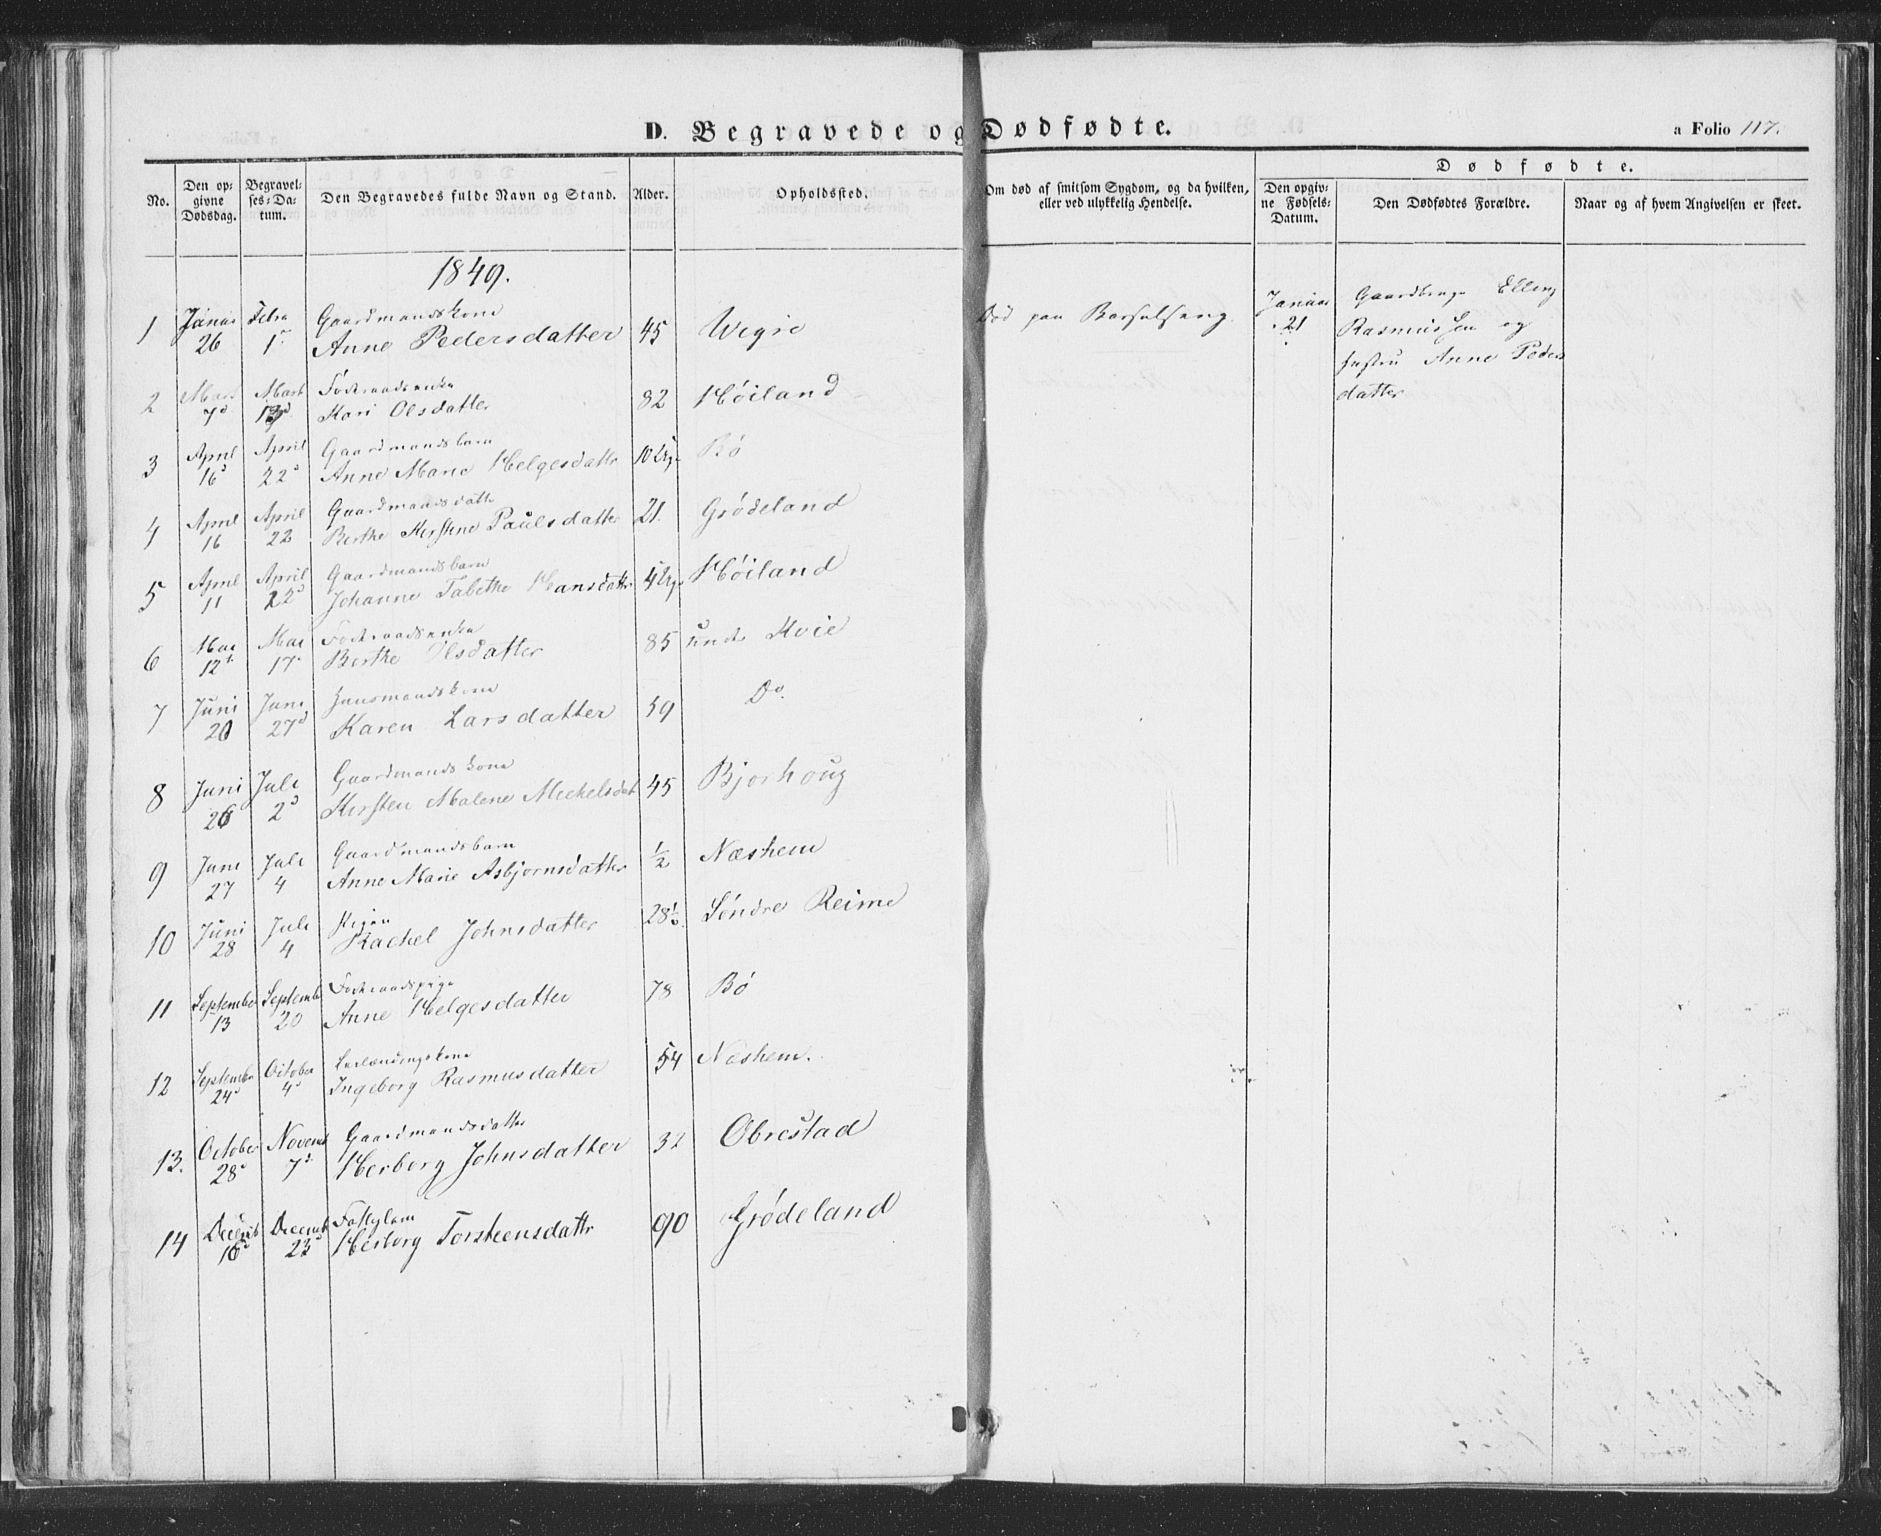 D. Begravede og Dødfødte.
a Folio 117.
No.
Den op-
givne
Dødsdag.
Begravel-
ses-Da-
tum.
Den Begravedes fulde Navn og Stand.
Alder.
Opholdssted.
Om død af smitsom Sygdom, og da hvilken,
eller ved ulykkelig Hendelse.
Dødfødte.
Den opgiv-
ne Fødsels-
Datum.
Den Dødfødtes Forældre.
Naar og af hvem Angivelsen er skeet.
1849.
1 Januar 26 Febra 1 Gaardmandskone
Anne Pedersdatter 45 Wigre
Død paa Barselseng.
Januar 21
Gaardbruger Elling
Rasmussen og
Hustru Anne Peders
datter
2 Mart 7d Mart Føderaadsenke
Kari Olsdatter 82 Høiland
3 April 16d April 22d Gaardmandsbarn
Anne Marie Helgesdattr 10 Ug. Bø
4 April 16 April 22 Gaardmandsdatter
Berthe Kirstine Paulsdatter 21. Grødeland
5 April 11 April 22d Gaardmandsbarn
Johanne Tabithe Hansdattr 4 Ug. Høiland
6 Mai 12t Mai 17 Føderaadsenke
Berthe Olsdatter 85 under Kvie
7 Juni Juni 27d Huusmandskone
Karen Larsdatter 59 Do.
8 Juni 26 Juli 2d Gaardmandskone
Kirsten Malene Mickelsdat 45 Bjorhoug
9 Juni 27 Juli 4 Gaardmandsbarn
Anne Marie Asbjørnsdatter 1/2 Næshem
10 Juni 28 Juli 4 Pigen
Rachel Johnsdatter 28 1/2 Søndre Reime
11 September 13 Septembr 20 Føderaadspige
Anne Helgesdatter 78 Bø
12 Septembr 24d October 4d
Ingeborg Rasmusdatter 54 Næshem.
13. October 28d Novemb 7d Gaardmandsdatter
Herborg Johnsdatter 32 Obrestad
14 Decemb 16d Decemb 23d Fattiglem
Herborg Torsteensdattr 90 Grødeland